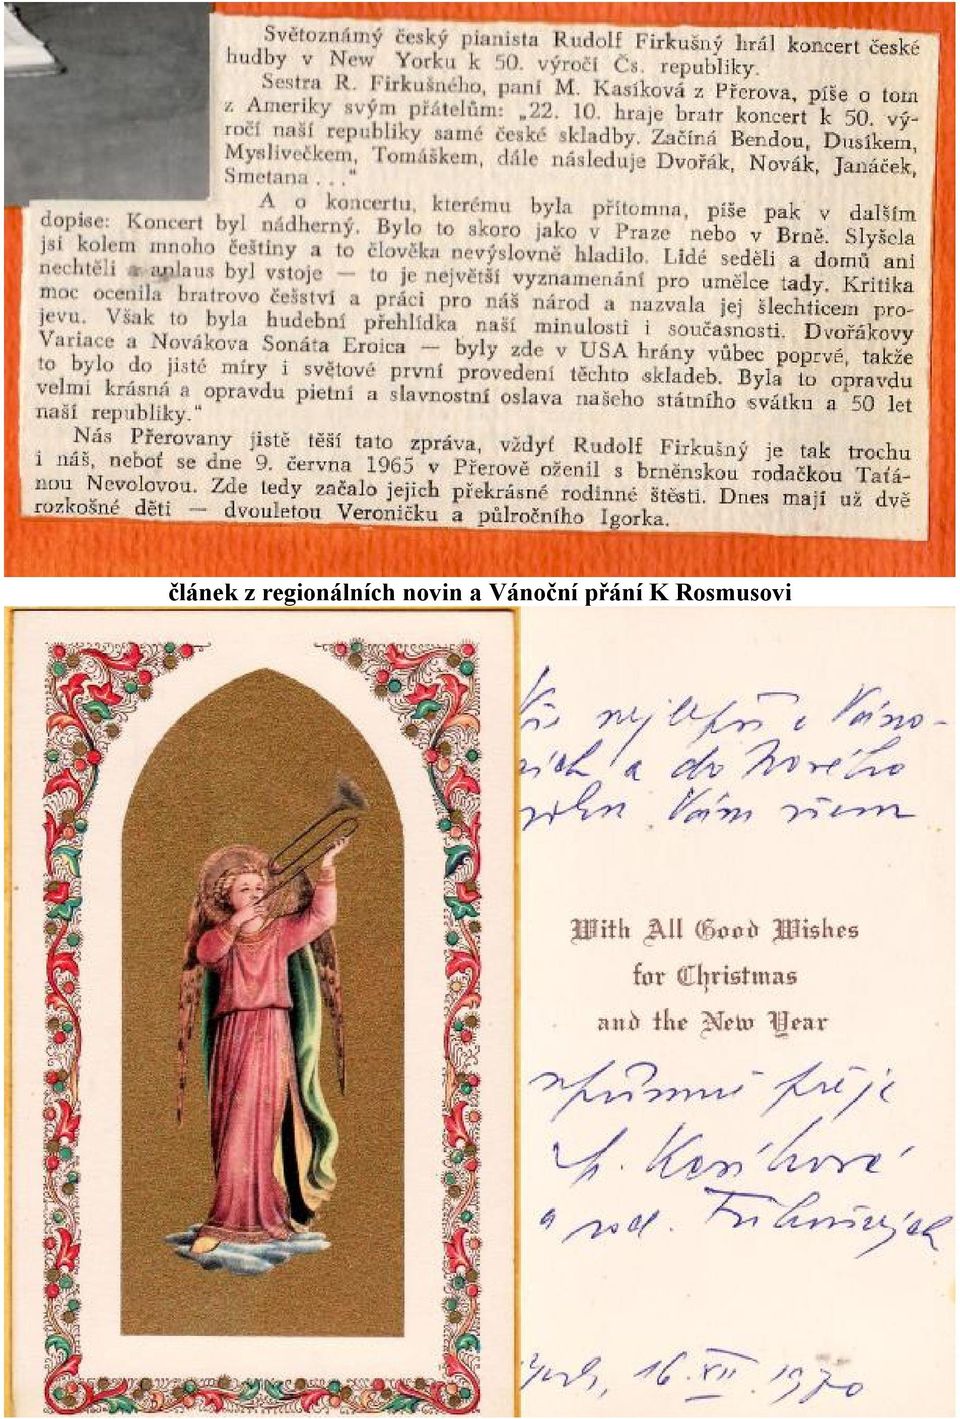 Světoznámý český pianista Rudolf Firkušný hrál koncert české
hudby v New Yorku k 50. výročí Čs. republiky.
Sestra R. Firkušného, paní M. Kasíková z Přerova, píše o tom
z Ameriky svým přátelům: „22. 10. hraje bratr koncert k 50. vý-
ročí naší republiky samé české skladby. Začíná Bendou, Dusíkem,
Myslivečkem, Tomáškem, dále následuje Dvořák, Novák, Janáček,
Smetana ..."
A o koncertu, kterému byla přítomna, píše pak v dalším
dopise: Koncert byl nádherný. Bylo to skoro jako v Praze nebo v Brně. Slyšela
jsi kolem mnoho češtiny a to člověka nevýslovně hladilo. Lidé seděli a domů ani
nechtěli a aplaus byl vstoje — to je největší vyznamenání pro umělce tady. Kritika
moc ocenila bratrovo češství a práci pro náš národ a nazvala jej šlechticem pro-
jevu. Však to byla hudební přehlídka naší minulosti i současnosti. Dvořákovy
Variace a Novákova Sonáta Eroica — byly zde v USA hrány vůbec poprvé, takže
to bylo do jisté míry i světové první provedení těchto skladeb. Byla to opravdu
velmi krásná a opravdu pietní a slavnostní oslava našeho státního svátku a 50 let
naší republiky."
Nás Přerovany jistě těší tato zpráva, vždyť Rudolf Firkušný je tak trochu
i náš, neboť se dne 9. června 1965 v Přerově oženil s brněnskou rodačkou Taťá-
nou Nevolovou. Zde tedy začalo jejich překrásné rodinné štěstí. Dnes mají už dvě
rozkošné děti — dvouletou Veroničku a půlročního Igorka.
článek z regionálních novin a Vánoční přání K Rosmusovi
Vše nejlepší o Váno-
cích a do Nového
roku Vám všem
With All Good Wishes
for Christmas
and the New Year
upřímně přeje
Kasíková
a rod.
16. XII. 1970